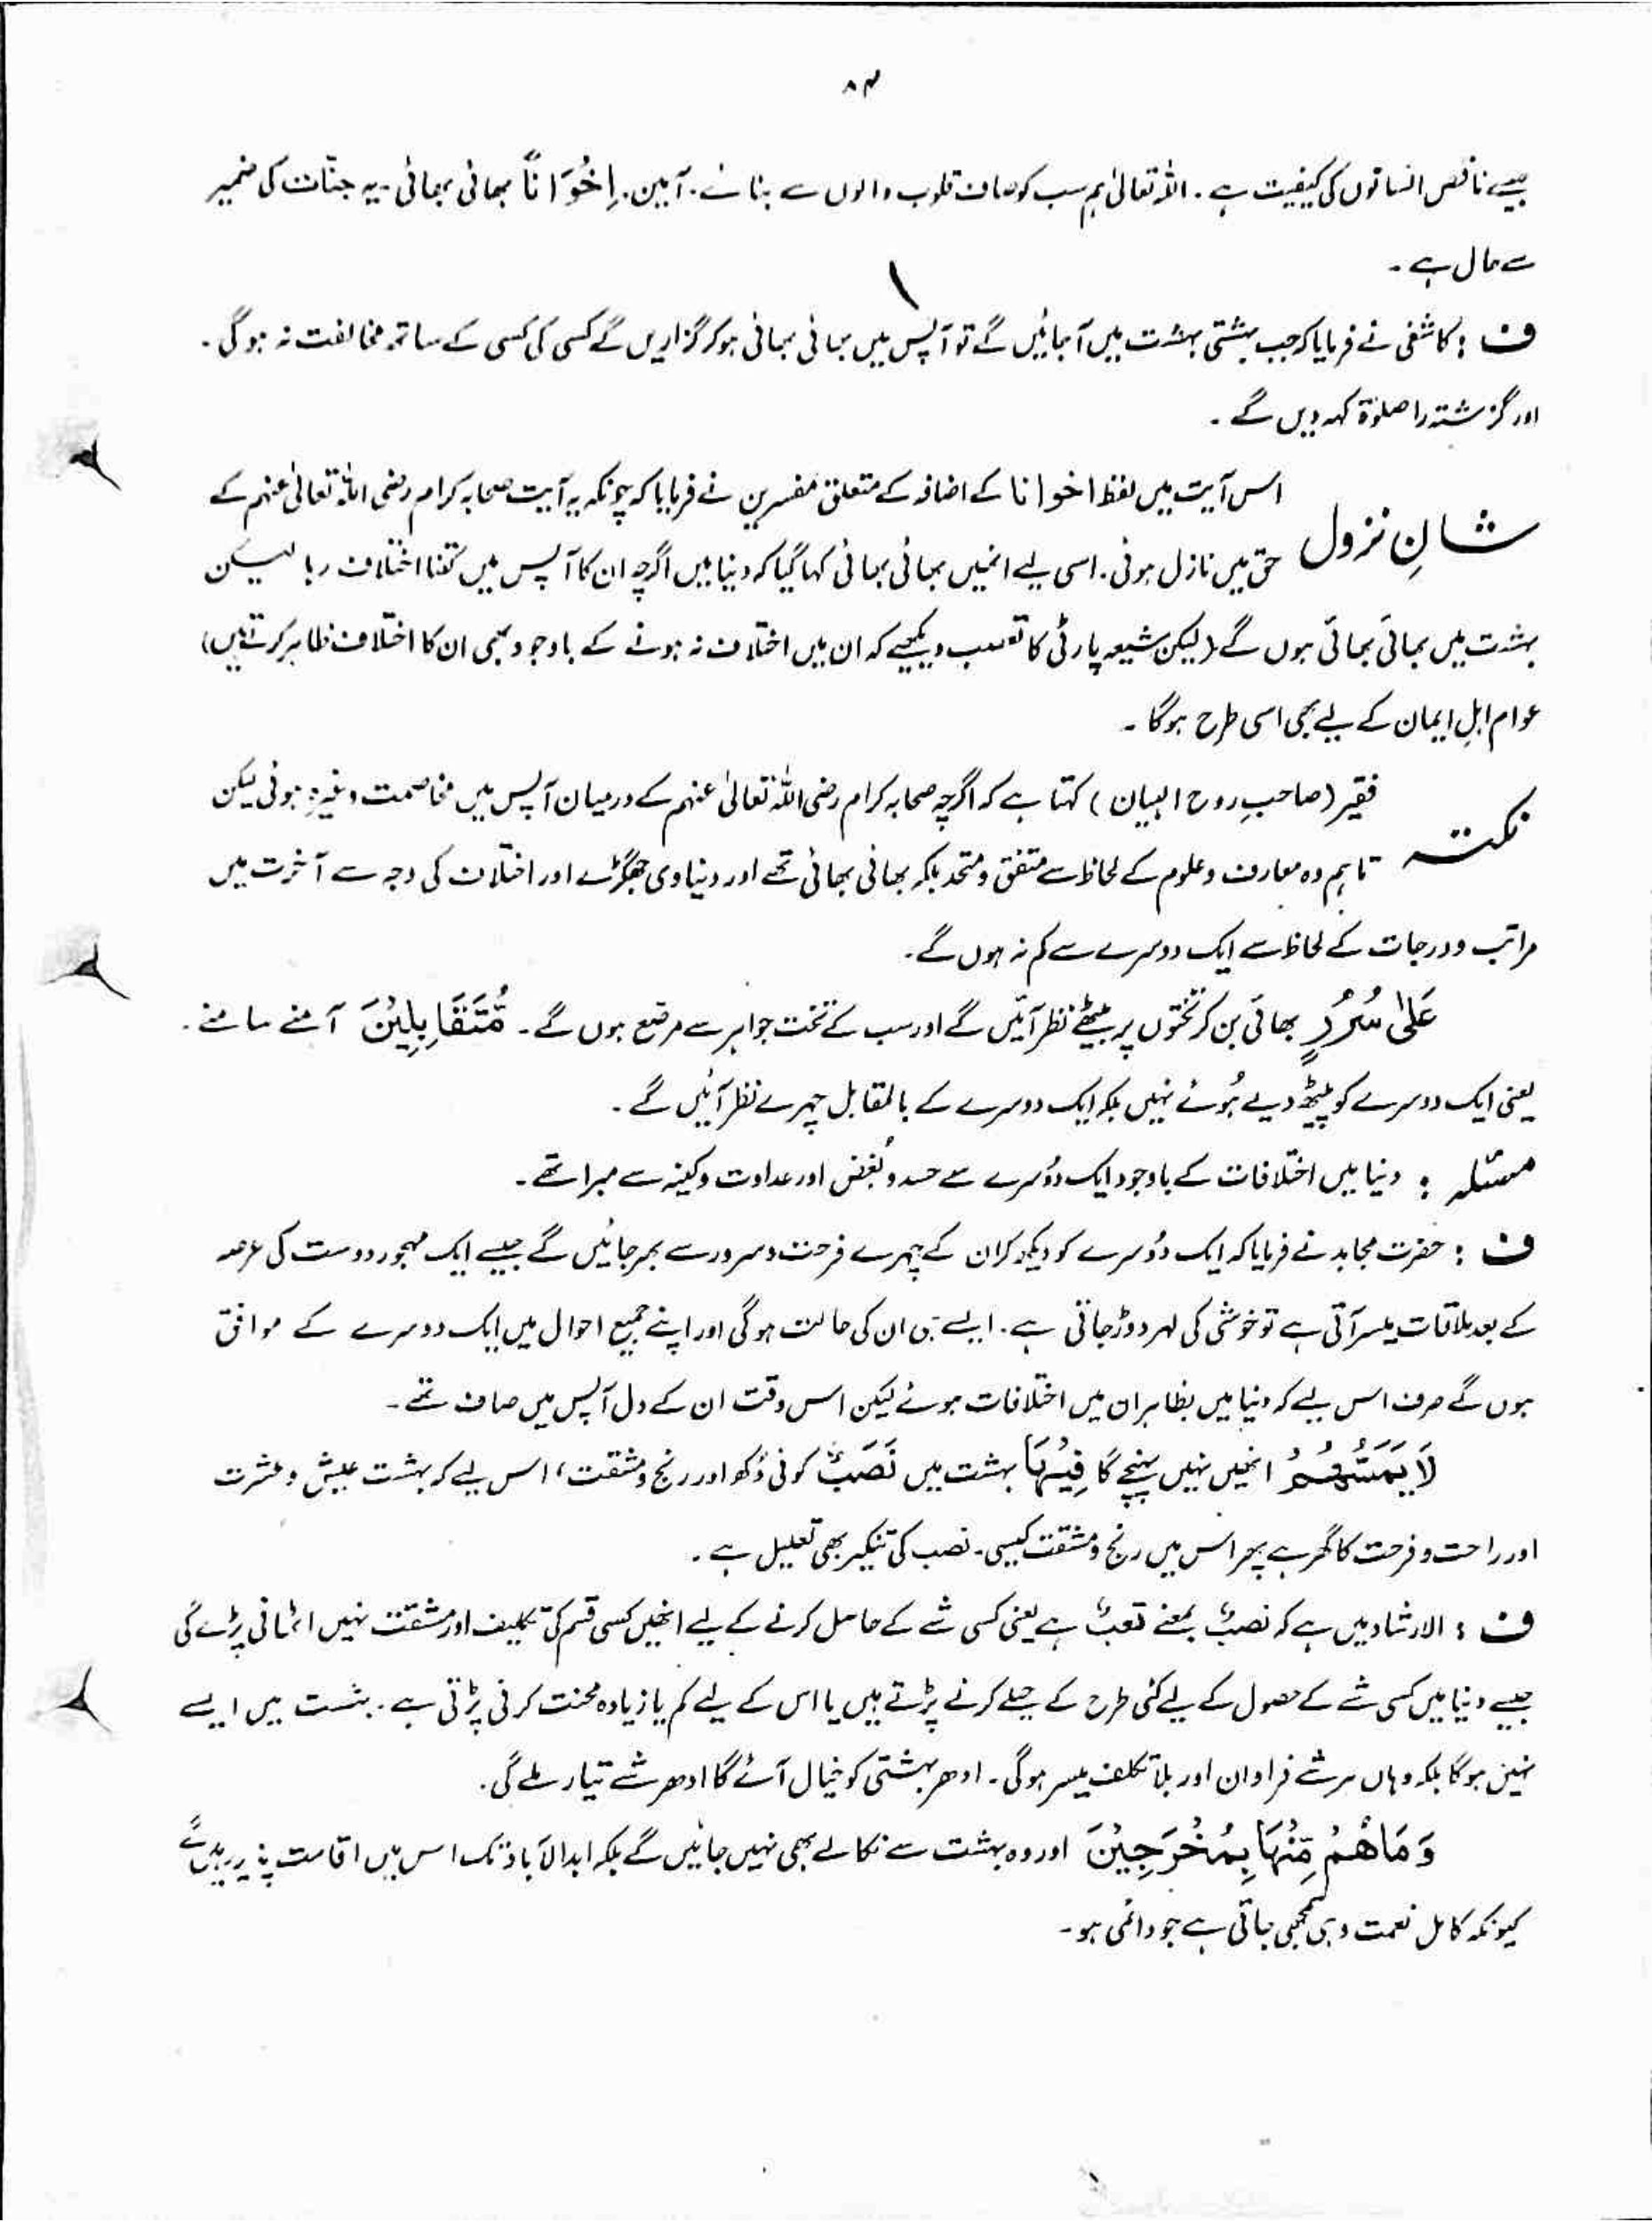 ۸۴
جیسے ناقص انسانوں کی کیفیت ہے ۔ اللہ تعالیٰ ہم سب کو صاف قلوب والوں سے بنائے۔ آمین۔ اِخْوَانًا بھائی بھائی ۔ یہ جنّات کی ضمیر
سے حال ہے ۔
ف : کاشفی نے فرمایا کہ جب بہشتی بہشت میں آجائیں گے تو آپس میں بھائی بھائی ہو کر گزاریں گے کسی کی کسی کے ساتھ مخالفت نہ ہو گی ۔
اور گزشتہ را صلوٰۃ کہہ دیں گے ۔
اس آیت میں لفظ اخوانا کے اضافہ کے متعلق مفسرین نے فرمایا کہ چونکہ یہ آیت صحابہ کرام رضی اللہ تعالیٰ عنہم کے
شانِ نزول حق میں نازل ہوئی ۔ اسی لیے انہیں بھائی بھائی کہا گیا کہ دنیا میں اگرچہ ان کا آپس میں کتنا اختلاف رہا لیکن
بہشت میں بھائی بھائی ہوں گے (لیکن شیعہ پارٹی کا تعصب دیکھیے کہ ان میں اختلاف نہ ہونے کے باوجود بھی ان کا اختلاف ظاہر کرتے ہیں)
عوام اہلِ ایمان کے لیے بھی اسی طرح ہو گا ۔
فقیر (صاحبِ روح البیان) کہتا ہے کہ اگرچہ صحابہ کرام رضی اللہ تعالیٰ عنہم کے درمیان آپس میں مخاصمت وغیرہ ہوئی لیکن
نکتہ تاہم وہ معارف و علوم کے لحاظ سے متفق و متحد بلکہ بھائی بھائی تھے اور دنیاوی جھگڑے اور اختلاف کی وجہ سے آخرت میں
مراتب و درجات کے لحاظ سے ایک دوسرے سے کم نہ ہوں گے۔
عَلٰی سُرُرٍ بھائی بن کر تختوں پر بیٹھے نظر آئیں گے اور سب کے تخت جواہر سے مرصع ہوں گے ۔ مُّتَقَابِلِیْنَ آمنے سامنے ۔
یعنی ایک دوسرے کو پیٹھ دیے ہُوئے نہیں بلکہ ایک دوسرے کے بالمقابل چہرے نظر آئیں گے ۔
مسئلہ : دنیا میں اختلافات کے باوجود ایک دُوسرے سے حسد و بُغض اور عداوت و کینہ سے مبرا تھے ۔
ف : حضرت مجاہد نے فرمایا کہ ایک دُوسرے کو دیکھ کر ان کے چہرے فرحت و سرور سے بھر جائیں گے جیسے ایک مہجور دوست کی عرصہ
کے بعد ملاقات میسر آتی ہے تو خوشی کی لہر دوڑ جاتی ہے ۔ ایسے ہی ان کی حالت ہو گی اور اپنے جمیع احوال میں ایک دوسرے کے موافق
ہوں گے صرف اس لیے کہ دنیا میں بظاہر ان میں اختلافات ہوئے لیکن اس وقت ان کے دل آپس میں صاف تھے ۔
لَا یَمَسُّھُمْ انہیں نہیں پہنچے گا فِیْہَا بہشت میں نَصَبٌ کوئی دُکھ اور رنج و مشقت ، اس لیے کہ بہشت عیش و عشرت
اور راحت و فرحت کا گھر ہے پھر اس میں رنج و مشقت کیسی ۔ نصب کی تنکیر بھی تعلیل ہے ۔
ف : الارشاد میں ہے کہ نصبٌ بمعنے تعبٌ ہے یعنی کسی شے کے حاصل کرنے کے لیے انھیں کسی قسم کی تکلیف اور مشقت نہیں اٹھانی پڑے گی
جیسے دنیا میں کسی شے کے حصول کے لیے کئی طرح کے حیلے کرنے پڑتے ہیں یا اس کے لیے کم یا زیادہ محنت کرنی پڑتی ہے ۔ بہشت میں ایسے
نہیں ہو گا بلکہ وہاں ہر شے فراوان اور بلا تکلف میسر ہو گی ۔ ادھر بہشتی کو خیال آئے گا ادھر شے تیار ملے گی ۔
وَ مَا ھُمْ مِّنْہَا بِمُخْرَجِیْنَ اور وہ بہشت سے نکالے بھی نہیں جائیں گے بلکہ ابد الآباد تک اس میں اقامت پذیر رہیں گے
کیونکہ کامل نعمت وہی سمجھی جاتی ہے جو دائمی ہو ۔